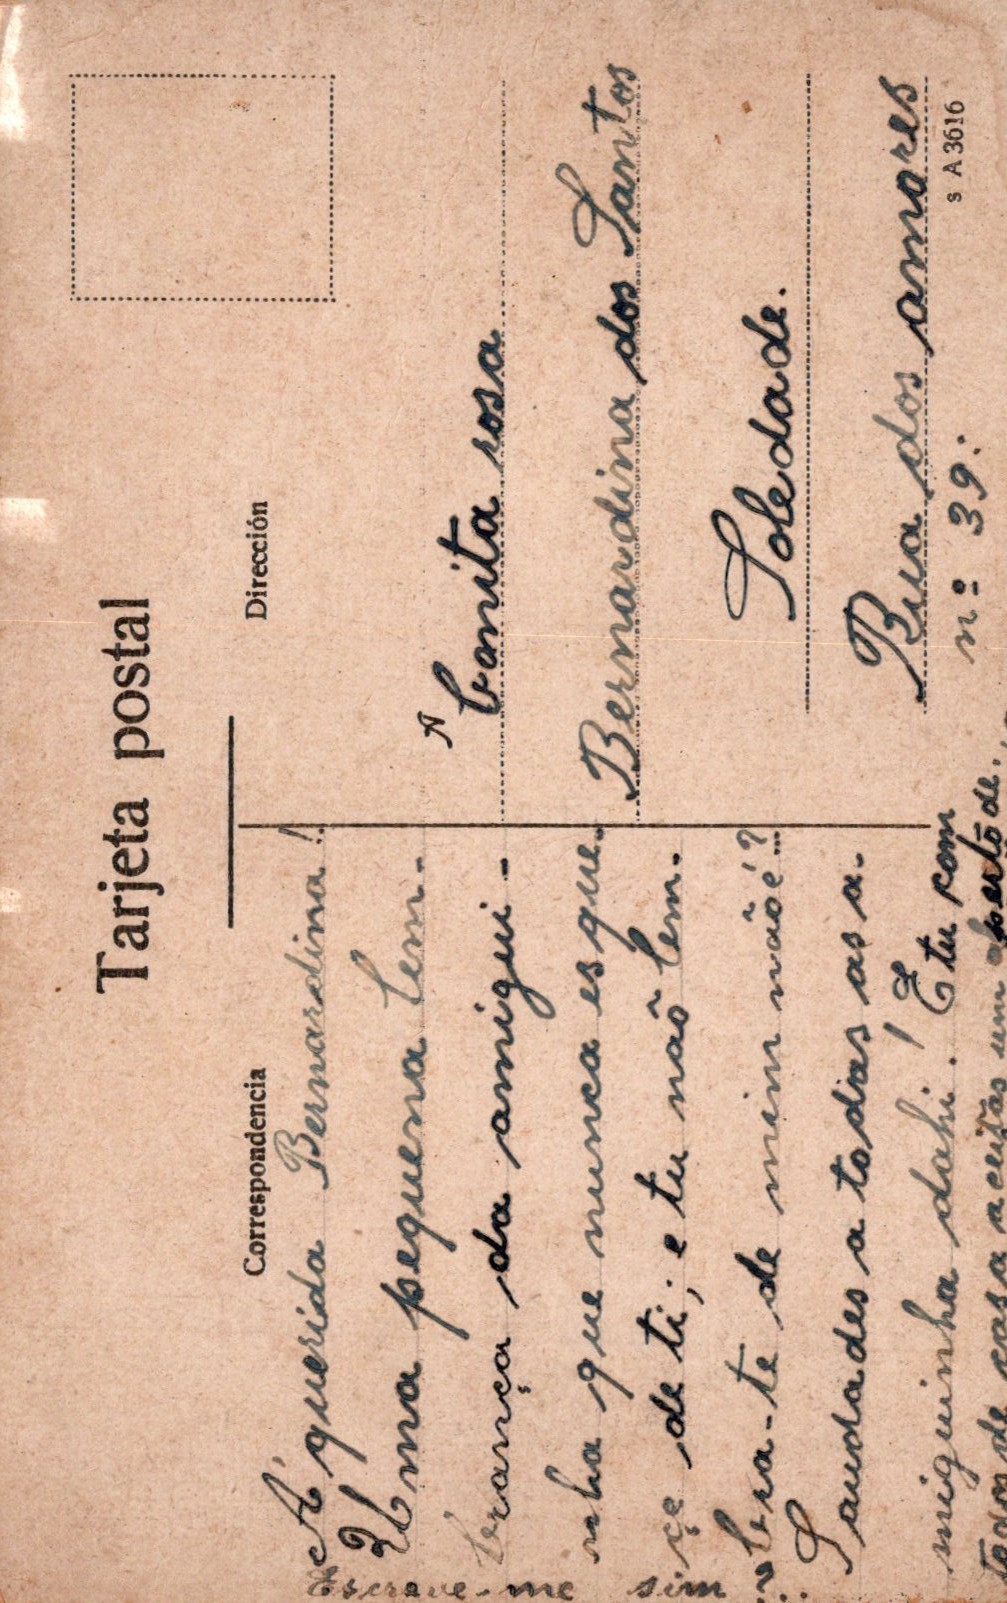 Tarjeta postal
Correspondencia
Á querida Bernardina!...
Uma pequena lem-
brança da amigui-
nha que nunca esque-
çe de ti; e tu não lem-
bra-te de mim não é?...
Saudades a todas as a-
miguinha dahi! E tu com
todos de casa aceitas um aperto de
Escreve-me sim
Dirección
A
bonita rosa
Bernardina dos Santos
Soledade.
Rua dos amores
nº 39.
s A 3616